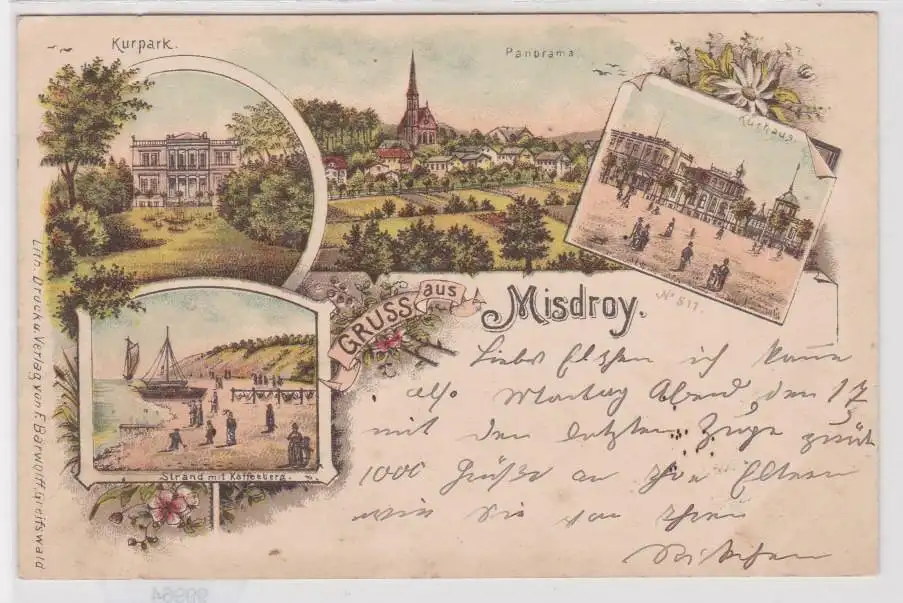 Kurpark.
Panorama.
Kurhaus.
No 511.
GRUSS aus
Misdroy.
Strand mit Kaffeeberg.
Lith. Druck u. Verlag von F. Bärwolff, Greifswald
Liebes ich komme
also Montag Abend den 17
mit dem letzten Zuge zurück
1000 Grüße an Ihre Eltern
wie Sie von Ihrem
99964